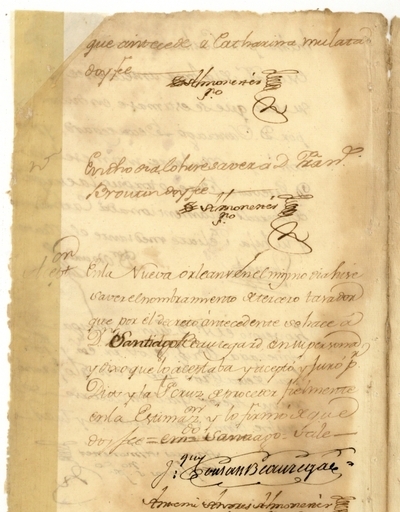 que antecede â Catharina mulata
doy fee
Almonester
En dho dia lo hize saver â Dn Fran.co
Brouain doy fee
Almonester
En la Nueva orleans en el mismo dia hize
saver el nombramiento de tercero tasador
que por el decreto antecedente se hace â
Dn Santiago Beauregard en su persona
y dixo que lo aceptaba y acepto y juro pr
Dios y la Cruz de proceder fielmente
en la Estimaon y lo firmó de que
doy fee = emdo Santiago. Vale
Tousan Beauregar
Almonester